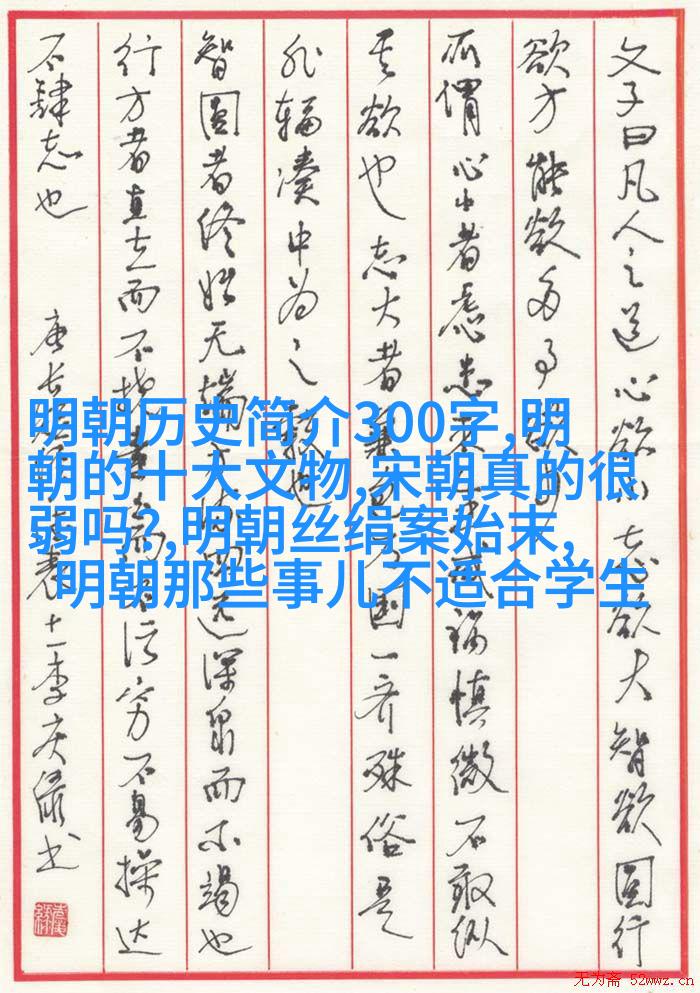 文子曰凡人之道心欲小志欲大智欲圆行
欲方能欲多事
所谓心小者虑患未戒祸慎微不敢纵
其欲也志大者兼国一齐殊俗是
非辐凑中为之毂也
智圆者终始无端方远深泉而不竭也
行方者直立而不挠污穷不易操达
不肆志也
唐长表十一李庆书
明朝历史简介300字,明
朝的十大文物,宋朝真的很
弱吗?,明朝丝绢案始末,
明朝那些事儿不适合学生
无为斋 52wwz.cn